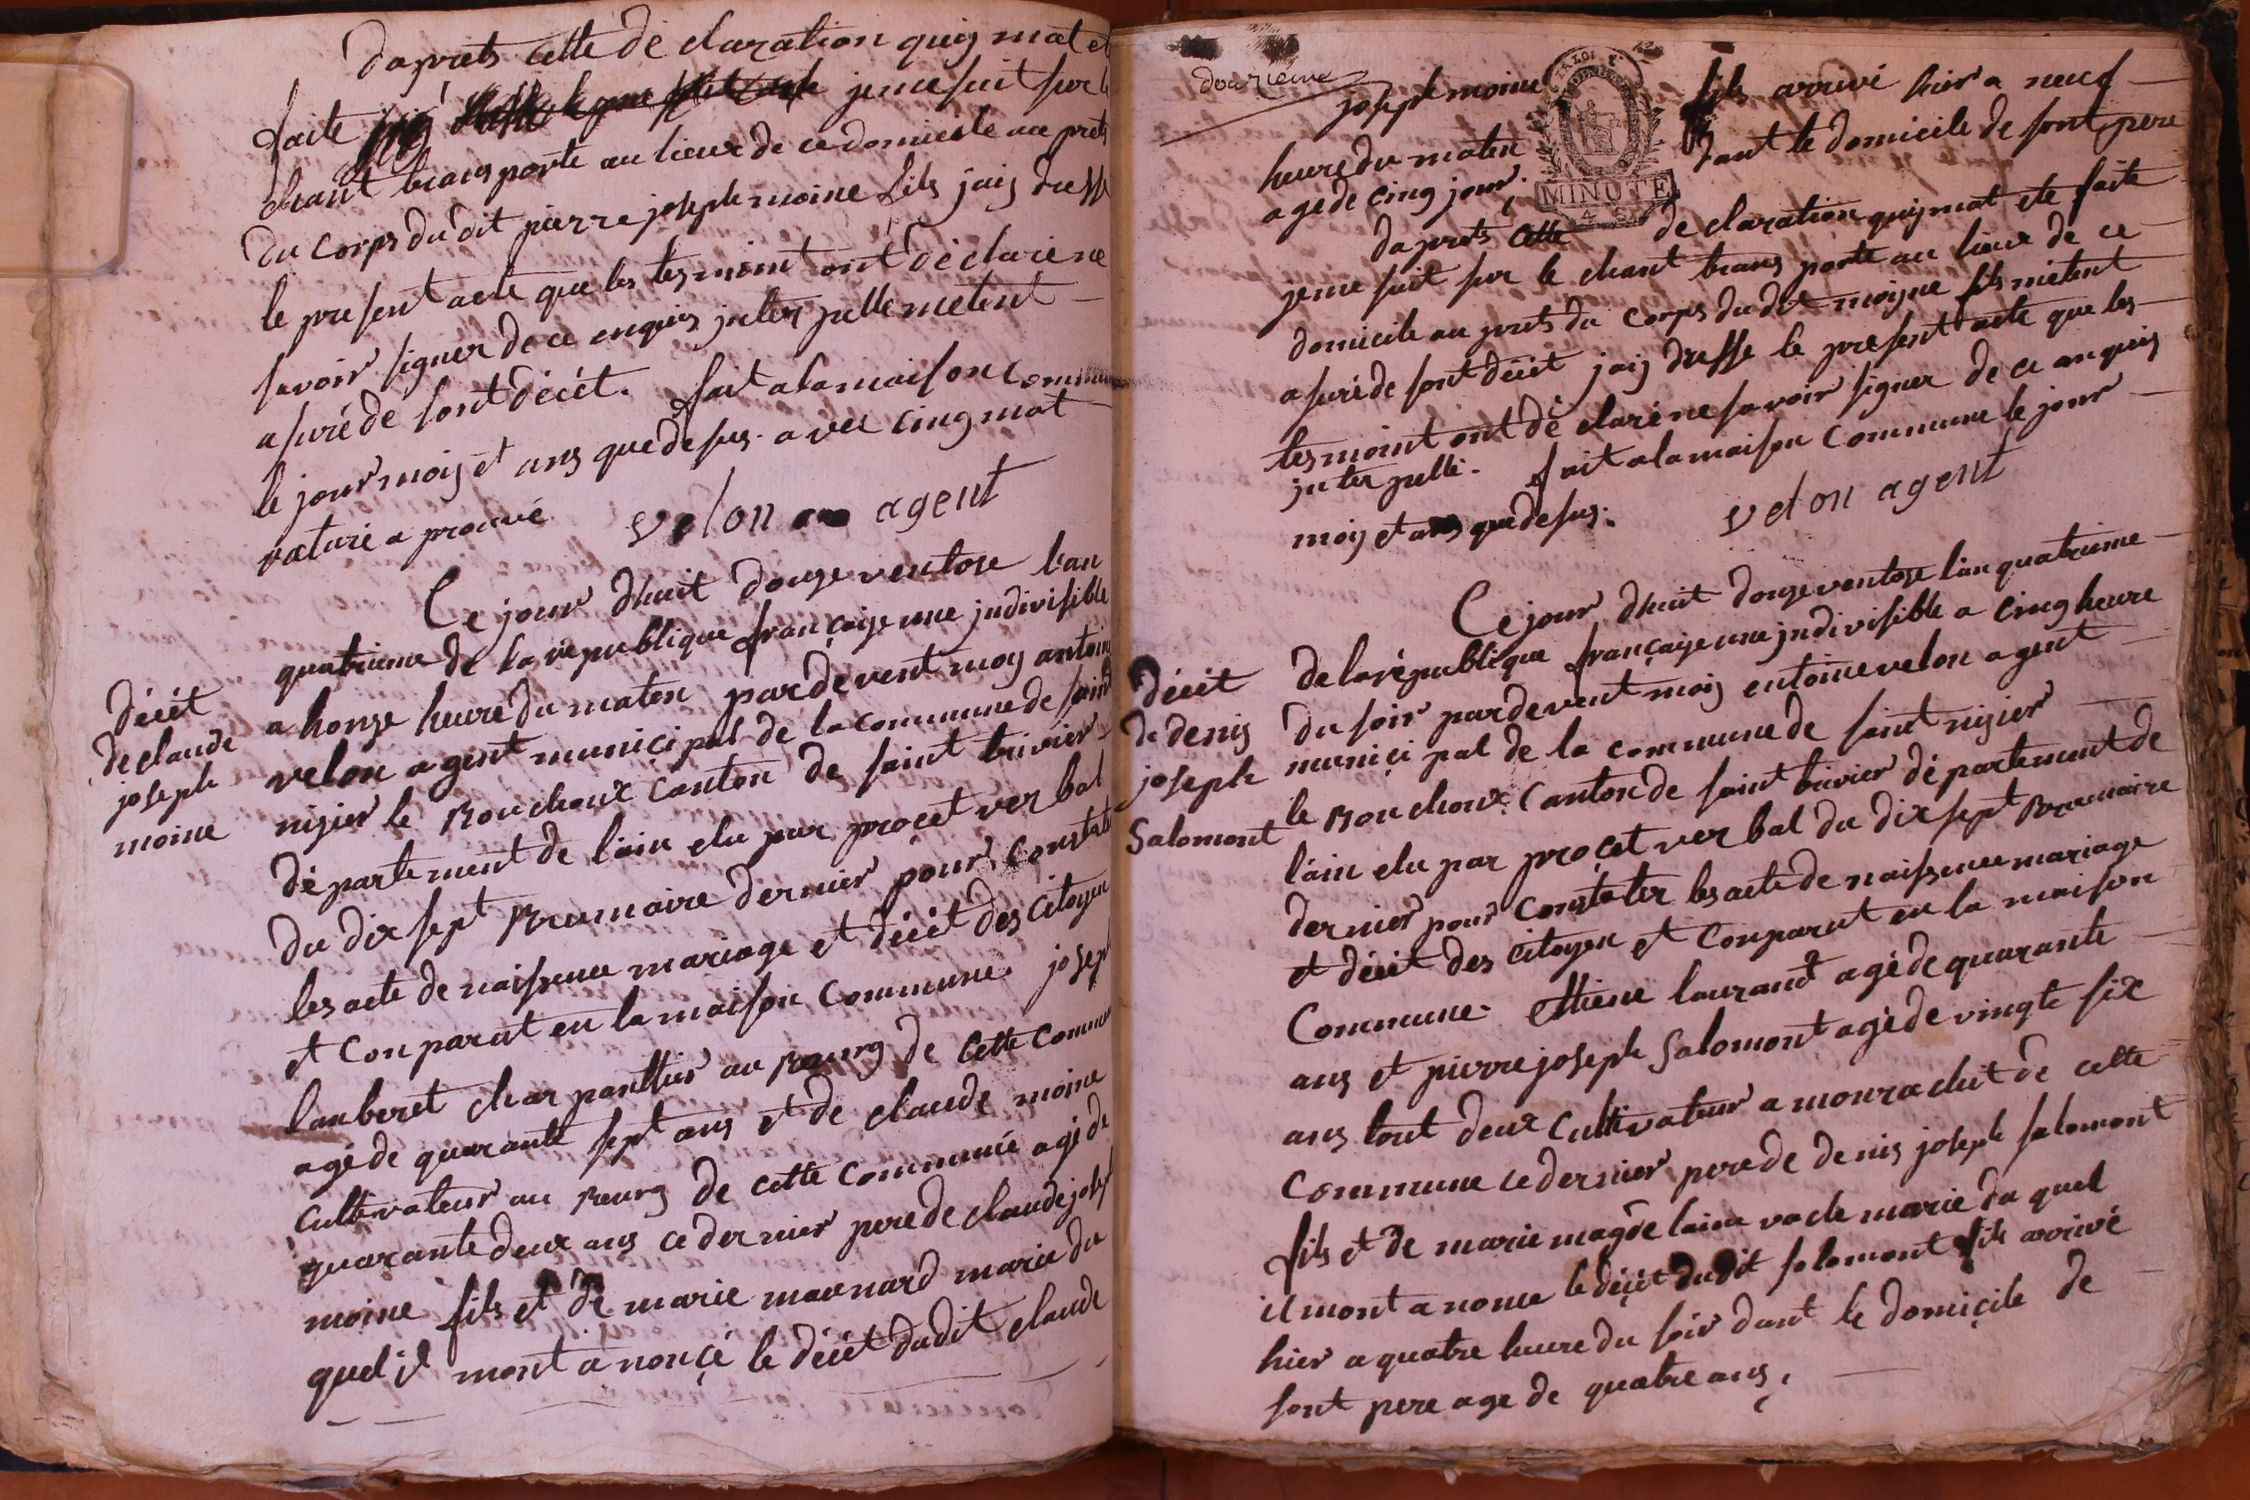 daprets cette dé claration quij mat et
faite je me suit sur le
chant trans porté au lieux de ce domicile au prets
du corps du dit pierre joseph moine fils jaij dresse
le present acte que les tesmoint ont dé claré ne
savoir signer de ce enquis jnter pelle metent
asuré de sont décét. fait a la maison commune
le jour mois et ans que desus. avec cinq mot
raturé a prouvé velon agent
Ce jour dhuit douze ventose l'an
quatrieme de la république françaize une jndivisible
a honze heure du maten par devent moy antoine
velon agent muniçi pal de la commune de saint
nizier le Bouchoux canton de saint trivier
dé partement de l'ain elu par procet ver bal
du dix sept Brumaire dernier pour constater
les acte de naissence mariage et décét des citoyen
et conparut en la maison commune joseph
lanberet char panttier au Bourg de cette commune
agé de quarante sept ans et de claude moine
cultivateur au Bourg de cette commune agé de
quarante deux ans ce dernier pere de claude joseph
moine fils et de marie maenard marie du
quel il mont a nonçé le décét dudit claude
décét
de claude
joseph
moine
douzieme
joseph moine fils arrivé hier a neuf
heure du maten dant le domicile de sont pere
age de cinq jour.
MINUTE
daprets cette dé claration quij mat ete faite
je me suit sur le chant trans porte au lieux de ce
domicile au prets du corps du dit moijne fils metent
asuré de sont décét jaij dresse le present acte que les
tesmoint ont dé claré ne savoir signer de ce anquis
jnter pellé. fait a la maison commune le jour
mois et ans que desus. velon agent
Ce jour dhuit douze ventose l'an quatrieme
de la république françaize une jndivisible a cinq heure
du soir par devent moij entoine velon agent
muniçi pal de la commune de saint nizier
le Bouchoux canton de saint trivier dé partement de
l'ain elu par proçet ver bal du dix sept Brumaire
dernier pour constater les acte de naissence mariage
et décét des citoyen et conparut en la maison
commune. ettiene laurand agé de quarante
ans et pierre joseph salomont agé de vingte six
ans tout deux cultivateur a monrachet de cette
commune ce dernier pere de denis joseph salomont
fils et de marie magde laine marie du quel
il mont a nonce le décét dudit salomont fils arrivé
hier a quatre heure du soir dant le domiçile de
sont pere age de quatre ans.
décét
de denis
joseph
salomont